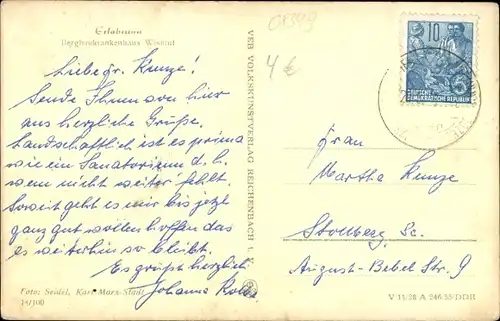 Erlabrunn
Bergbaukrankenhaus Wismut
01349
4 €
Liebe Fr. Kunze!
Sende Ihnen von hier
aus herzliche Grüße.
Landschaftlich ist es prima
wie ein Sanatorium d.h.
wem nicht weiter fehlt.
Soweit geht es mir bis jetzt
ganz gut wollen hoffen das
es weiterhin so bleibt.
Es grüßt herzlich
Johanna
Foto: Seidel, Karl-Marx-Stadt
14/100
VEB VOLKSKUNSTVERLAG REICHENBACH i. V.
10
DEUTSCHE
DEMOKRATISCHE REPUBLIK
Frau
Martha Kunze
Stollberg, Sa.
August-Bebel Str. 9
V 11/28 A 246-55-DDR